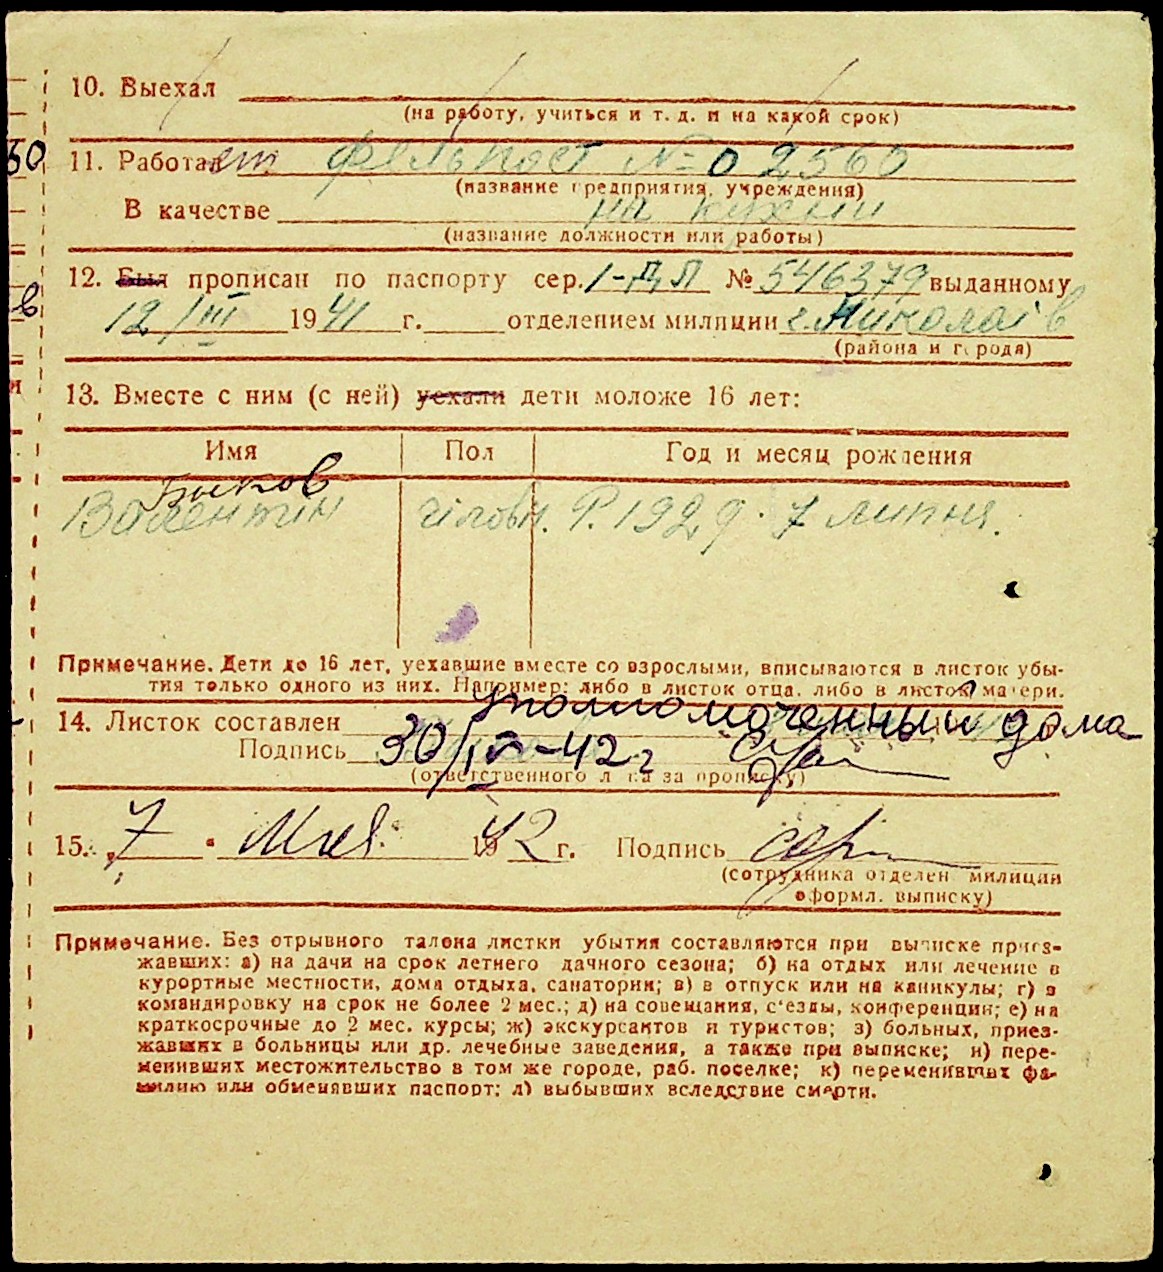 10. Выехал
(на работу, учиться и т. д. и на какой срок)
50
11. Работает фельпост № 02560
(название предприятия, учреждения)
В качестве на кухни
(название должности или работы)
12. Был прописан по паспорту сер. I-ДЛ № 546379 выданному
в
12/III 1941 г. отделением милиции г. Миколаїв
(района и города)
13. Вместе с ним (с ней) уехали дети моложе 16 лет:
Имя Пол Год и месяц рождения
Быков
Валентин чілов. Р. 1929. 7 липня.
Примечание. Дети до 16 лет, уехавшие вместе со взрослыми, вписываются в листок убы-
тия только одного из них. Например: либо в листок отца, либо в листок матери.
14. Листок составлен уполномоченный дома
Подпись 30/IV-42 г
(ответственного лица за прописку)
15. „7" Мая 1942 г. Подпись
(сотрудника отделен. милиции
оформл. выписку)
Примечание. Без отрывного талона листки убытия составляются при выписке приез-
жавших: а) на дачи на срок летнего дачного сезона; б) на отдых или лечение в
курортные местности, дома отдыха, санатории; в) в отпуск или на каникулы; г) в
командировку на срок не более 2 мес.; д) на совещания, с'езды, конференции; е) на
краткосрочные до 2 мес. курсы; ж) экскурсантов и туристов; з) больных, приез-
жавших в больницы или др. лечебные заведения, а также при выписке; и) пере-
менивших местожительство в том же городе, раб. поселке; к) переменивших фа-
милию или обменявших паспорт; л) выбывших вследствие смерти.